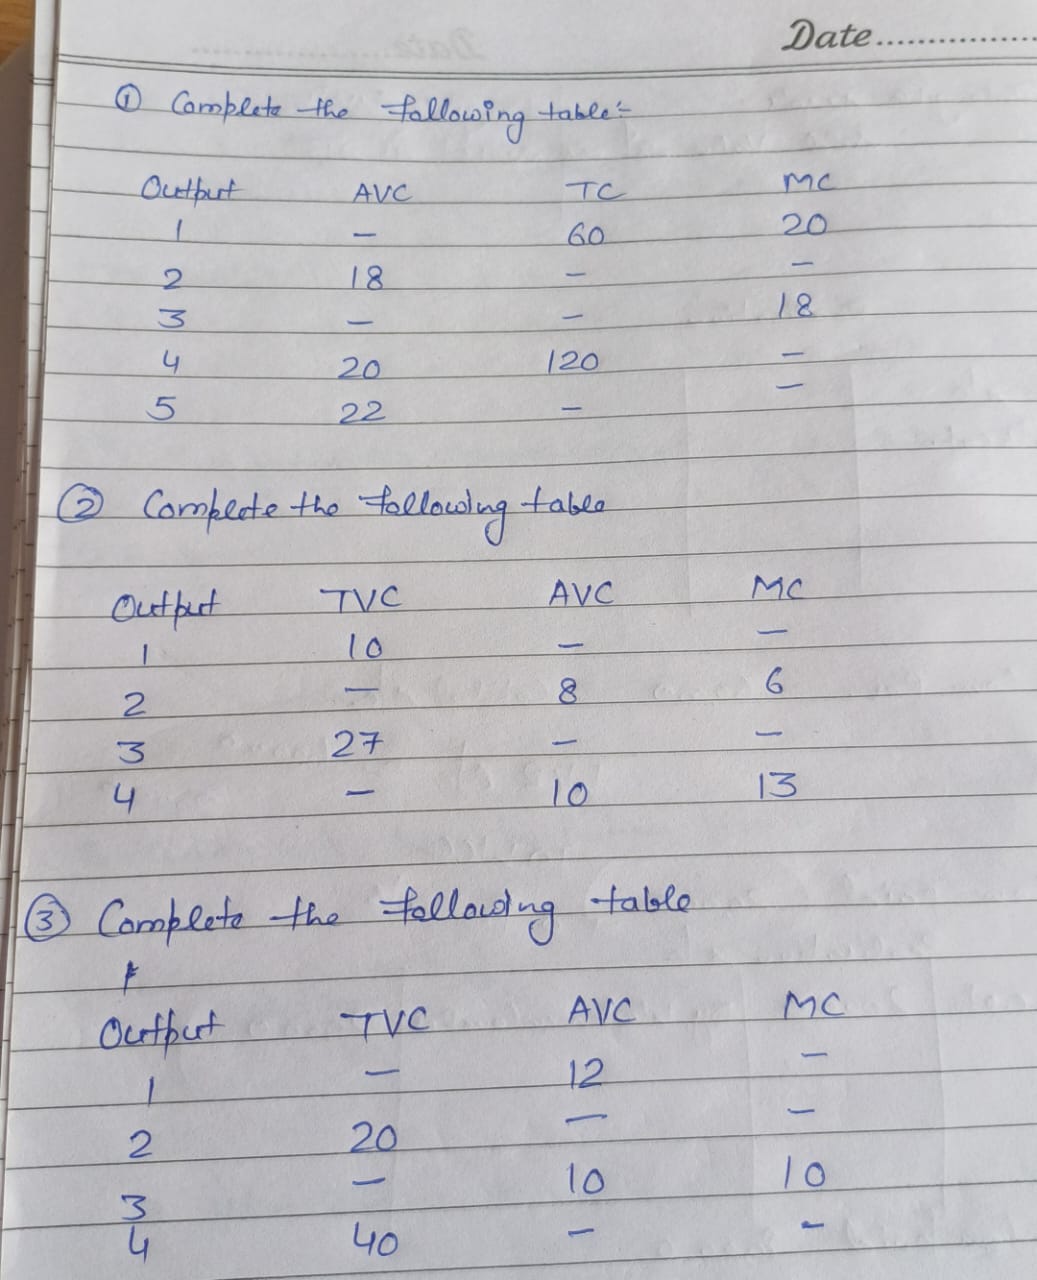 Date...............
① Complete the following table:-
Output AVC TC MC
1 — 60 20
2 18 — —
3 — — 18
4 20 120 —
5 22 — —
② Complete the following table
Output TVC AVC MC
1 10 — —
2 — 8 6
3 27 — —
4 — 10 13
③ Complete the following table
Output TVC AVC MC
1 — 12 —
2 20 — —
3 — 10 10
4 40 — —